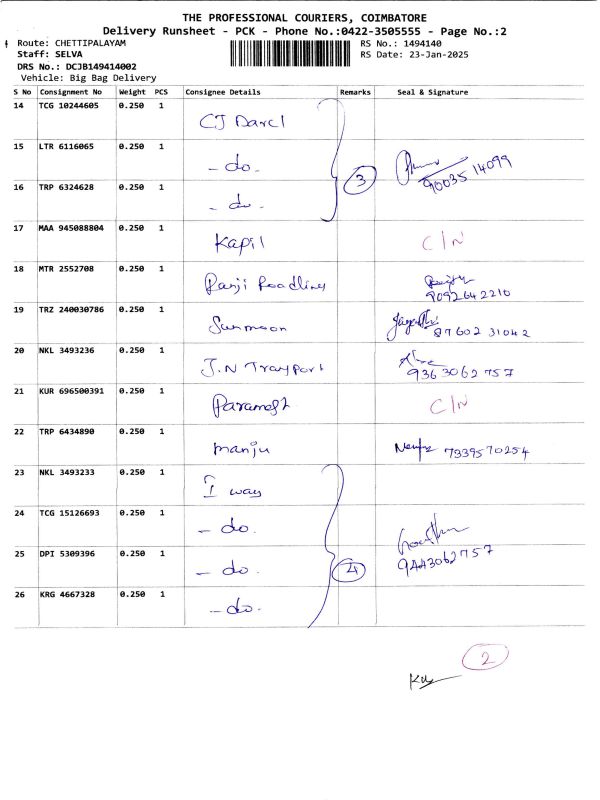 THE PROFESSIONAL COURIERS, COIMBATORE
Delivery Runsheet - PCK - Phone No.:0422-3505555 - Page No.:2
Route: CHETTIPALAYAM
RS No.: 1494140
Staff: SELVA
RS Date: 23-Jan-2025
DRS No.: DCJB149414002
Vehicle: Big Bag Delivery
S No Consignment No Weight PCS Consignee Details Remarks Seal & Signature
14 TCG 10244605 0.250 1 CJ Darcl
15 LTR 6116065 0.250 1 - do.
16 TRP 6324628 0.250 1 - do. 3 90035 14099
17 MAA 945088804 0.250 1 Kapil C/N
18 MTR 2552708 0.250 1 Ranji Roadlines
9092642210
19 TRZ 240030786 0.250 1 Sunmoon 87602 31042
20 NKL 3493236 0.250 1 J.N Transport
9363062757
21 KUR 696500391 0.250 1 C/N
22 TRP 6434890 0.250 1 manju 7339570254
23 NKL 3493233 0.250 1 I way
24 TCG 15126693 0.250 1 - do.
25 DPI 5309396 0.250 1 - do. 4 9443062757
26 KRG 4667328 0.250 1 - do.
2